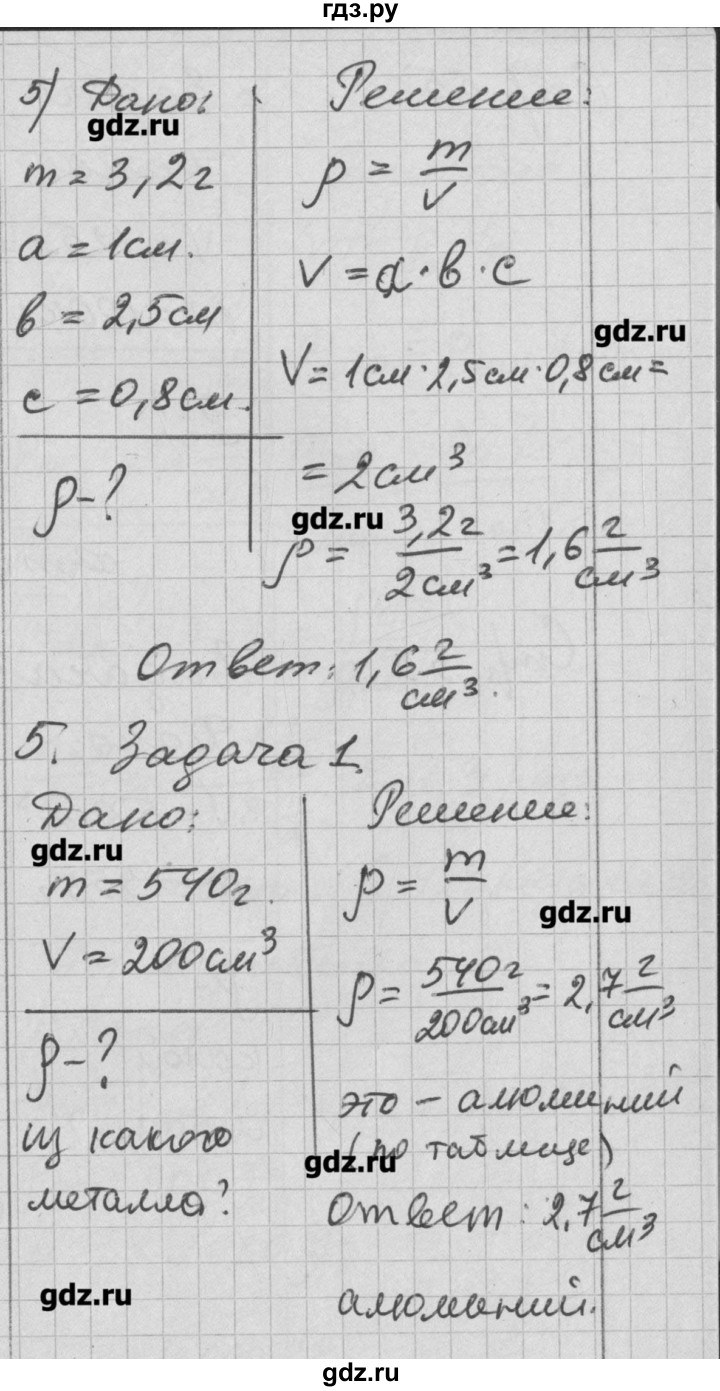 гдз.ру
5) Дано:
gdz.ru
m = 3,2г
a = 1см.
в = 2,5см
c = 0,8см.
ρ-?
Решение:
ρ = m/V
V = a·в·c
gdz.ru
V = 1см·2,5см·0,8см =
= 2см³
gdz.ru
ρ = 3,2г/2см³ = 1,6 г/см³
Ответ: 1,6 г/см³.
5. Задача 1.
Дано:
gdz.ru
m = 540г.
V = 200см³
ρ-?
из какого
металла?
gdz.ru
Решение:
ρ = m/V
gdz.ru
ρ = 540г/200см³ = 2,7 г/см³
это - алюминий
(по таблице)
gdz.ru
Ответ: 2,7 г/см³
алюминий.
gdz.ru